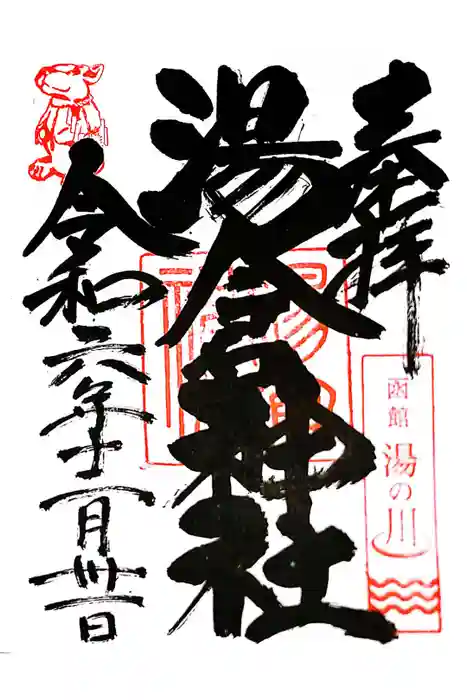 奉拝
函館 湯の川
湯倉神社
令和六年十一月丗日